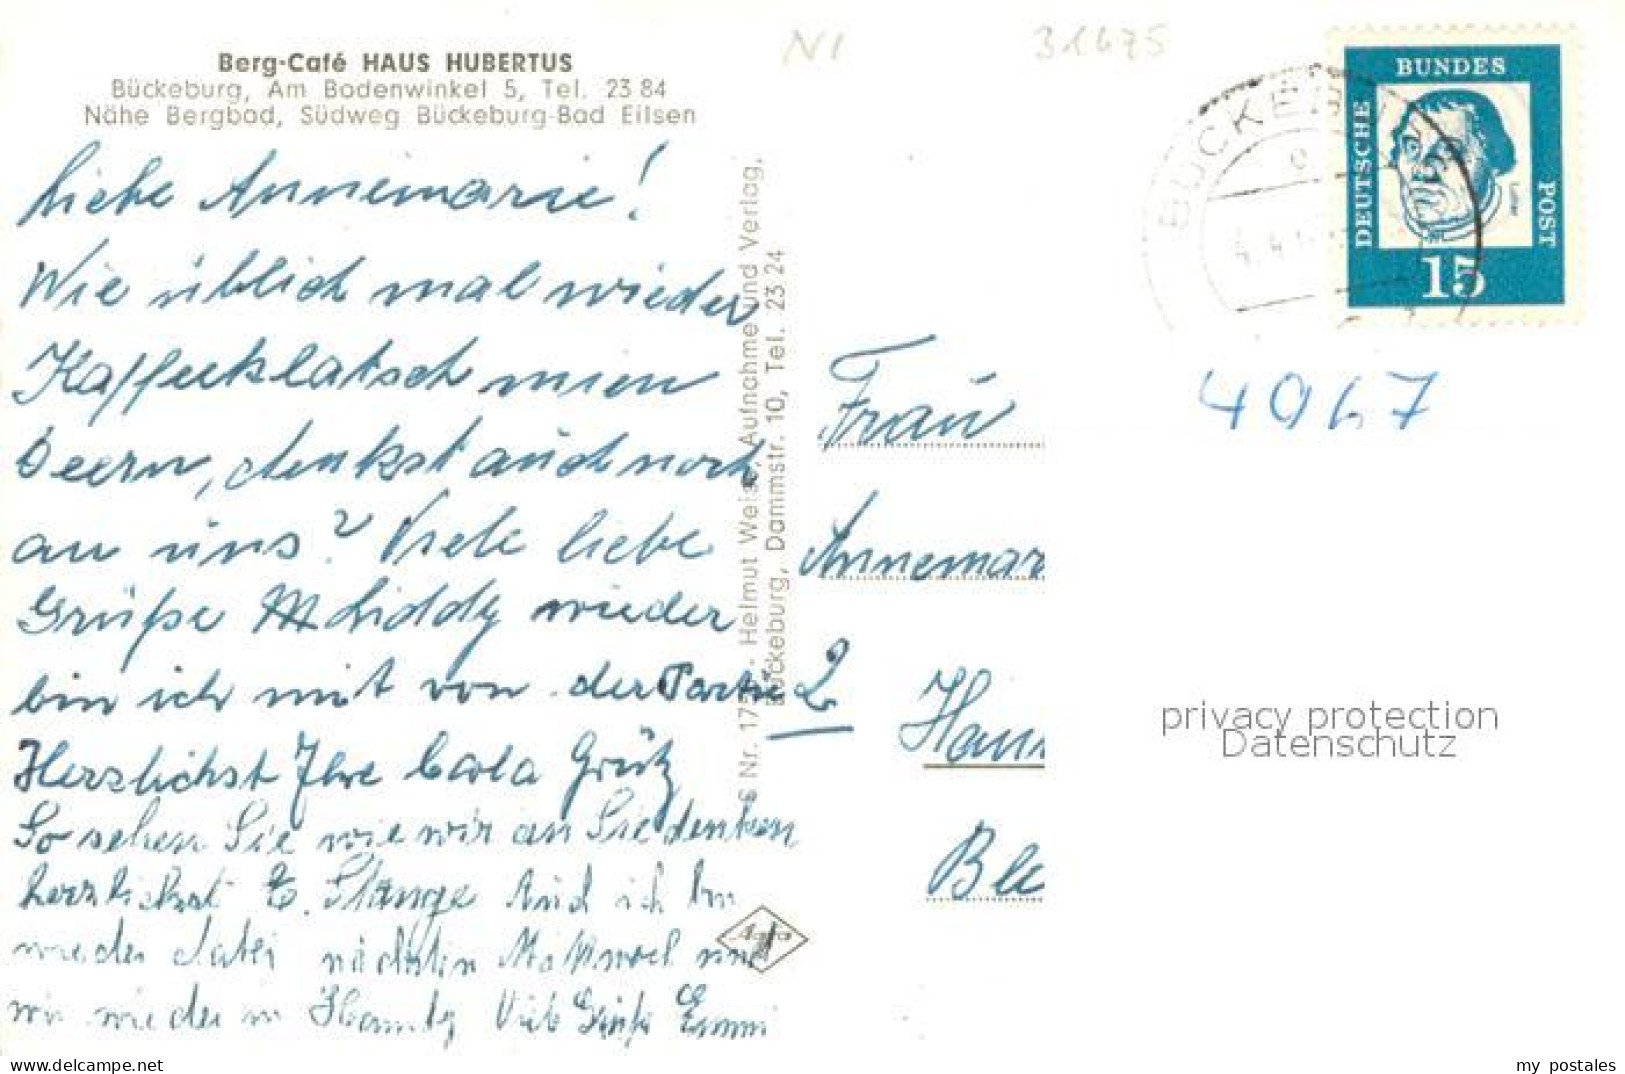 N1 31675
Berg-Café HAUS HUBERTUS
Bückeburg, Am Bodenwinkel 5, Tel. 23 84
Nähe Bergbad, Südweg Bückeburg-Bad Eilsen
BÜCKEB
BUNDES
DEUTSCHE
POST
Luther
15
Liebe Annemarie!
Wie üblich mal wieder
Kaffeeklatsch mien
Deern, denkst auch noch
an uns? Viele liebe
Grüße Liddy wieder
bin ich mit von der Partie
Herzlichst Ihre Carla Grütz
So sehen Sie wie wir an Sie denken
herzlichst E. Stange Auch ich bin
wieder dabei nächsten Mittwoch sind
wir wieder in Viele Grüße Emmi
S Nr. 175 - Helmut Weise, Aufnahme und Verlag,
Bückeburg, Dammstr. 10, Tel. 23 24
Agfa
4967
Frau
Annemar
2
Hann
Ble
privacy protection
Datenschutz
delcampe.net
my_postales